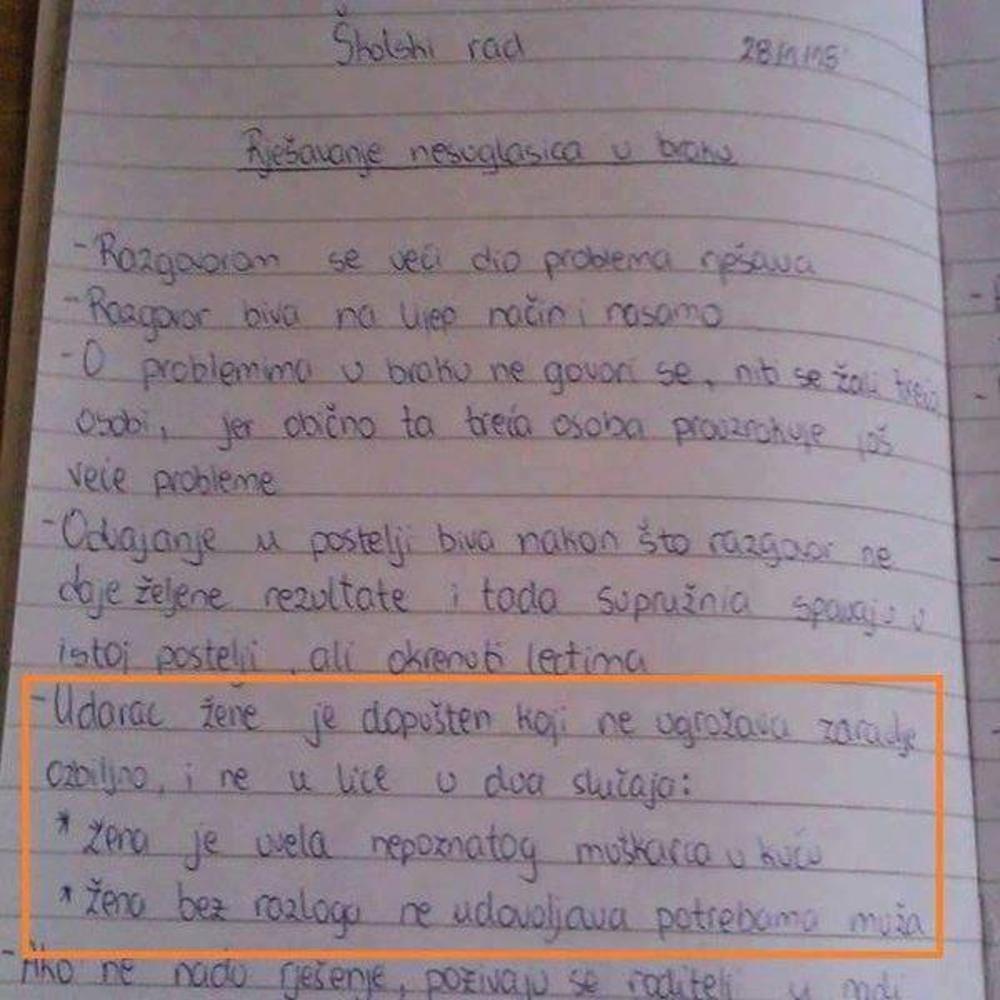 Školski rad 28/11/15
Rješavanje nesuglasica u braku
-Razgovorom se veći dio problema rješava
-Razgovor biva na lijep način i nasamo
-O problemima u braku ne govori se, niti se žali trećoj
osobi, jer obično ta treća osoba prouzrokuje još
veće probleme
-Odvajanje u postelji biva nakon što razgovor ne
daje željene rezultate i tada supružnia spavaju u
istoj postelji, ali okrenuti leđima
-Udarac žene je dopušten koji ne ugrožava
ozbiljno, i ne u lice u dva slučaja:
* žena je uvela nepoznatog muškarca u kuću
* žena bez razloga ne udovoljava potrebama muža
-Ako ne nađu rješenje, pozivaju se roditelji u